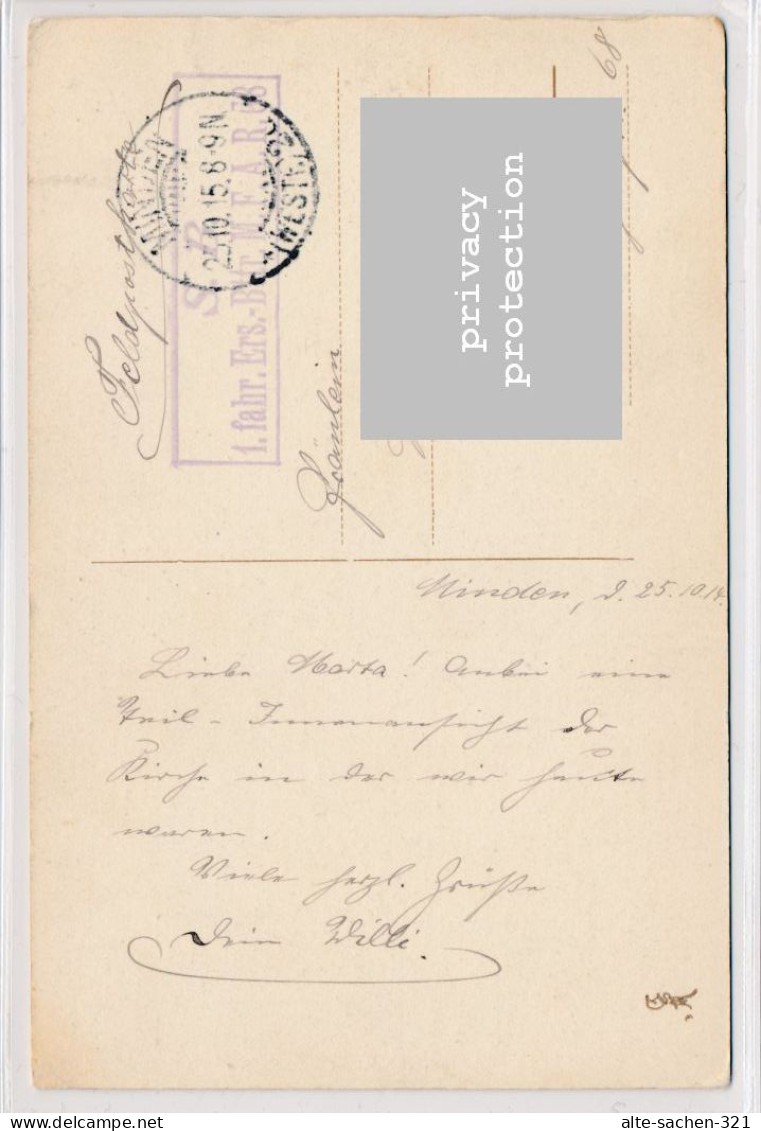 Feldpostkarte
MINDEN
25.10.15.8-9N
(WESTF)
S. B.
1. fahr. Ers.-Batt. M.F.A.R. 58
Fräulein
68
privacy
protection
Minden, d. 25.10.14.
Liebe Marta! Anbei eine
Teil-Innenansicht der
Kirche in der wir heute
waren.
Viele herzl. Grüße
Dein Willi.
alte-sachen-321